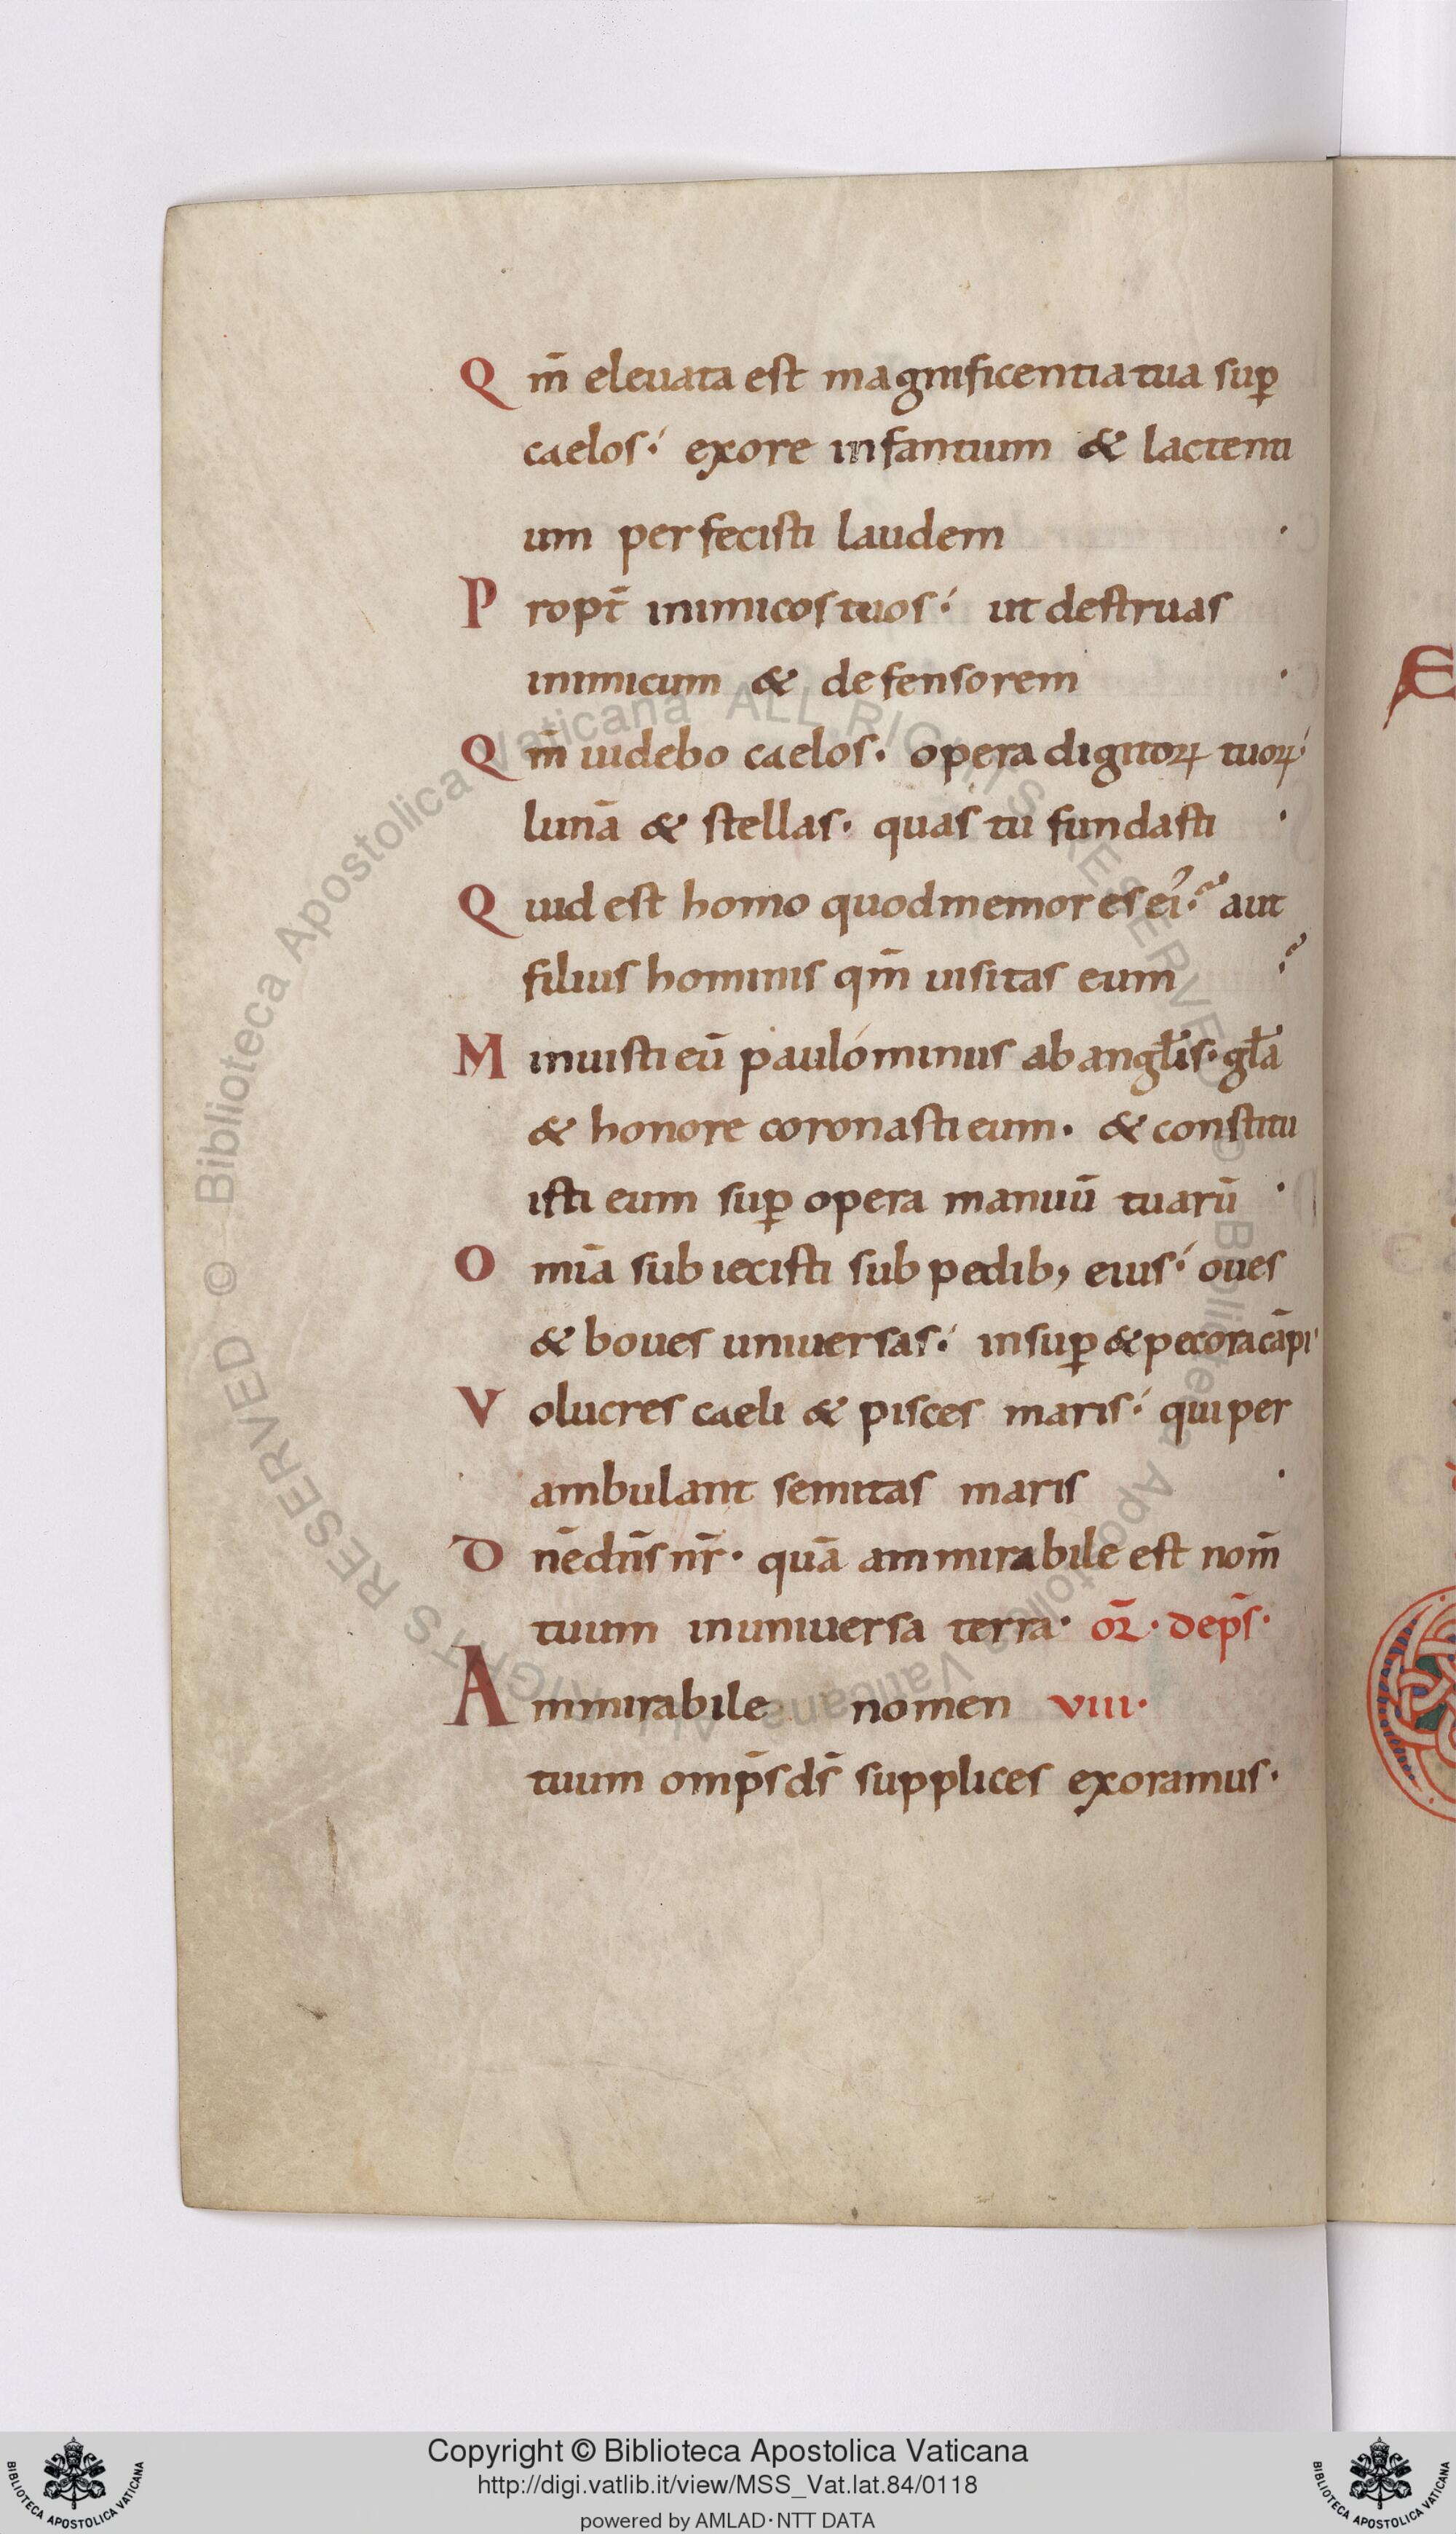 Qm̄ eleuata est magnificentia tua sup̄
caelos· exore infantium & lactenti
um perfecisti laudem ·
Propt̄ inimicos tuos· ut destruas
inimicum & defensorem ·
Qm̄ uidebo caelos· opera digitoꝝ tuoꝝ·
lunā & stellas· quas tu fundasti ·
Quid est homo quod memor es ei᾿· aut
filius hominis qm̄ uisitas eum ·
Minuisti eū paulóminus ab angl̄is· gl̄a
& honore coronasti eum· & constitu
isti eum sup̄ opera manuū tuarū ·
Omīa subiecisti sub pedib; eius· oues
& boues uniuersas· insup̄ & pecora cāpi
Volucres caeli & pisces maris· qui per
ambulant semitas maris ·
Dn̄e dn̄s nr̄· quā ammirabile est nom̄
tuum in uniuersa terra· oꝛ̄· dep̄s·
Ammirabile nomen VIII·
tuum omp̄s ds̄ supplices exoramus·
Copyright © Biblioteca Apostolica Vaticana
http://digi.vatlib.it/view/MSS_Vat.lat.84/0118
powered by AMLAD·NTT DATA
BIBLIOTECA APOSTOLICA VATICANA
BIBLIOTECA APOSTOLICA VATICANA
© Biblioteca Apostolica Vaticana ALL RIGHTS RESERVED © Biblioteca Apostolica Vaticana ALL RIGHTS RESERVED